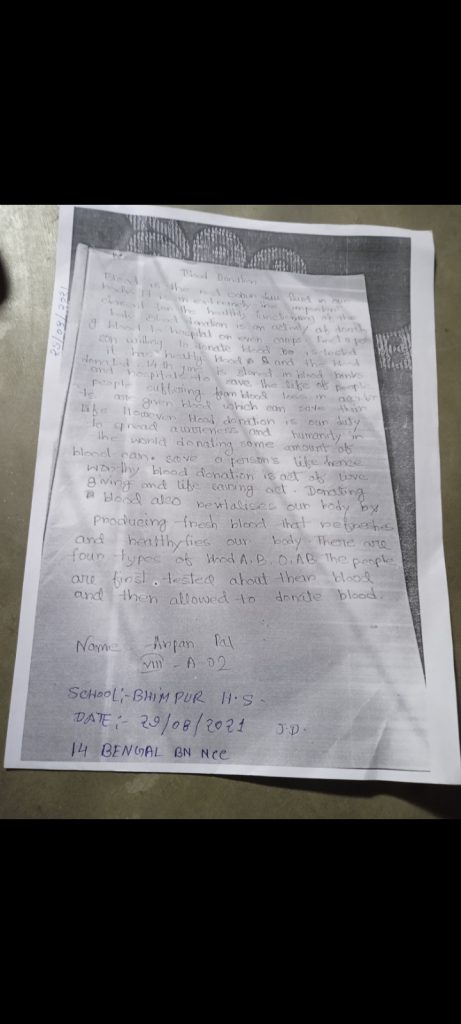 Blood Donation
Blood is the red colour fluid in our
body. It is an extremely important
for the healthy functioning of the
body. Blood donation is an activity of donating
blood in hospital or even camps. a per
son willing to donate blood is tested
if has healthy blood and the blood
donated is stored in blood banks
and hospitals to save the life of people
people suffering from blood loss in
are given blood which can save their
life. However blood donation is our duty
to spread awareness and humanity in
the world donating some amount of
blood can save a person's life hence
worthy blood donation is act of love
giving and life saving act. Donating
blood also revitalises our body by
producing fresh blood that refreshes
and healthyfies our body. There are
four types of blood A, B, O, AB. The people
are first tested about their blood
and then allowed to donate blood.
Name - Arpan Pal
VIII - A - 02
SCHOOL:- BHIMPUR H.S.
DATE:- 29/08/2021 J.D.
14 BENGAL BN NCC